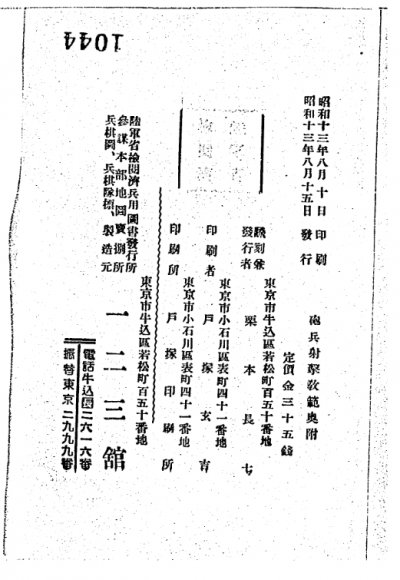 昭和十三年八月十日印刷
昭和十三年八月十五日發行
砲兵射擊敎範奥附
定價金三十五錢
東京市牛込區若松町百五十番地
發行者 栗本長七
東京市小石川區表町四十一番地
印刷者 戸塚玄育
東京市小石川區表町四十一番地
印刷所 戸塚印刷所
陸軍省檢閲濟兵用圖書發行所
參謀本部地圖賣捌所
兵棋圖、兵棋隊標、製造元
東京市牛込區若松町百五十番地
一二三舘
電話牛込二六一六番
振替東京二九九九番
1044